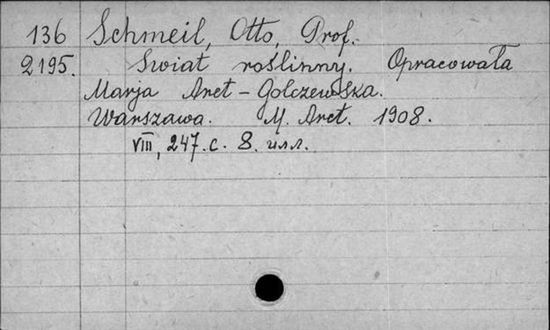 136 Schmeil, Otto, Prof.
2195. Swiat roślinny. Opracowała
Marja Arct-Golczewska.
Warszawa. M. Arct. 1908.
VIII, 247.c. 8. илл.